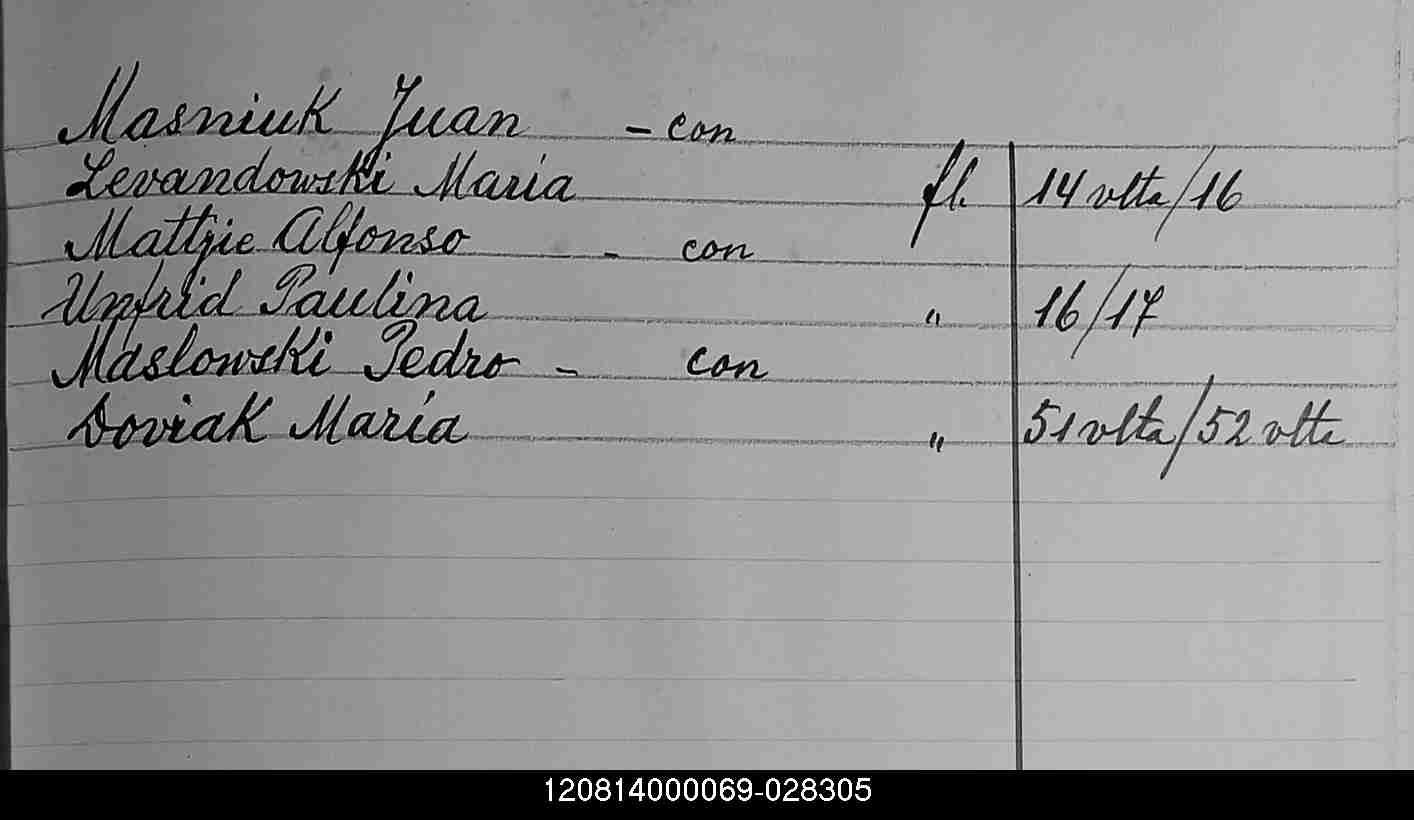 Masniuk Juan - con
Levandowski María fl. 14 vlta/16
Mattjie Alfonso - con
Unfrid Paulina " 16/17
Maslowski Pedro - con
Doviak María " 51 vlta/52 vlta
120814000069-028305